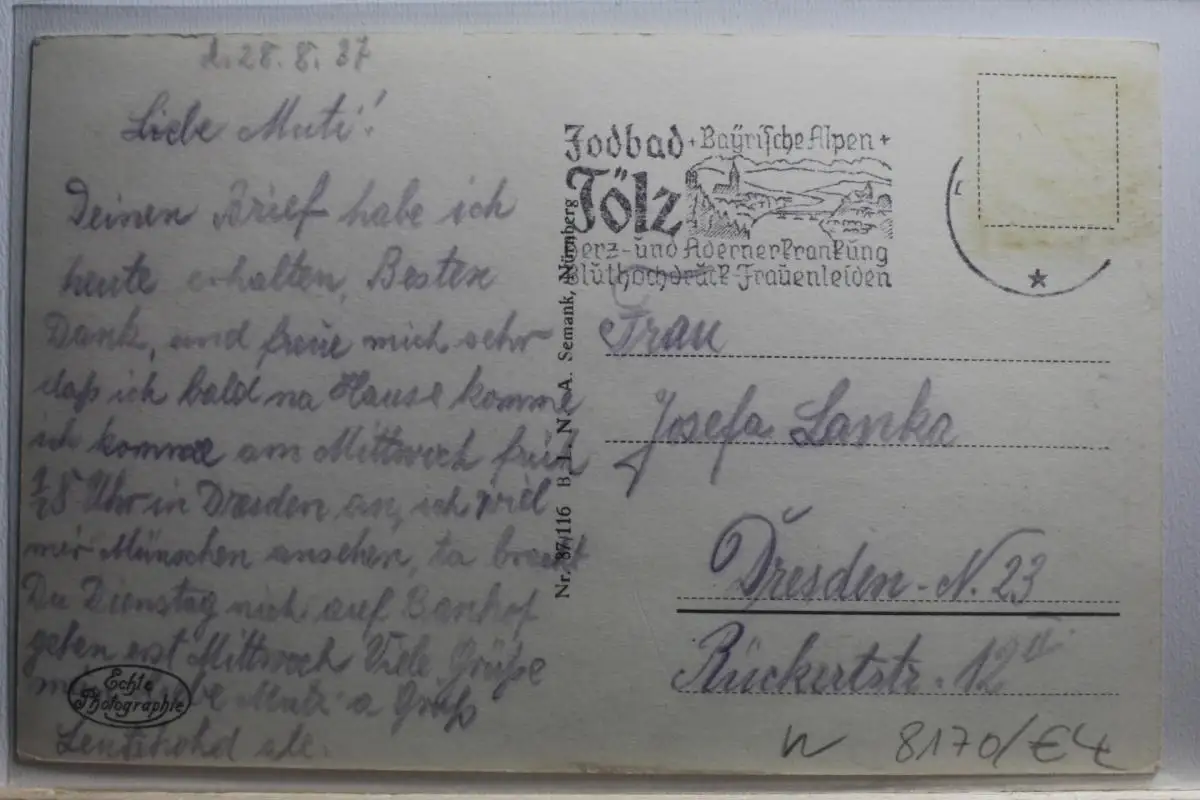 d. 28.8.37
Liebe Muti!
Deinen Brief habe ich
heute erhalten, Besten
Dank, und freue mich sehr
daß ich bald na Hause komme
ich komme am Mittwoch früh
½5 Uhr in Dresden an, ich wiel
mir Münschen ansehen, ta brauct
Du Dienstag nich auf Banhof
gehen erst Mittwoch Viele Grüße
Mutz a Gruß
Echte
Photographie
Jodbad + Bayrische Alpen +
Tölz
Herz- und Adernerkrankung
Bluthochdruck-Frauenleiden
Nr. 87/116 B. L. N. A. Semank, Nürnberg
Frau
Josefa Lanka
Dresden-N. 23
Rückertstr. 12 II
W 8170/€4